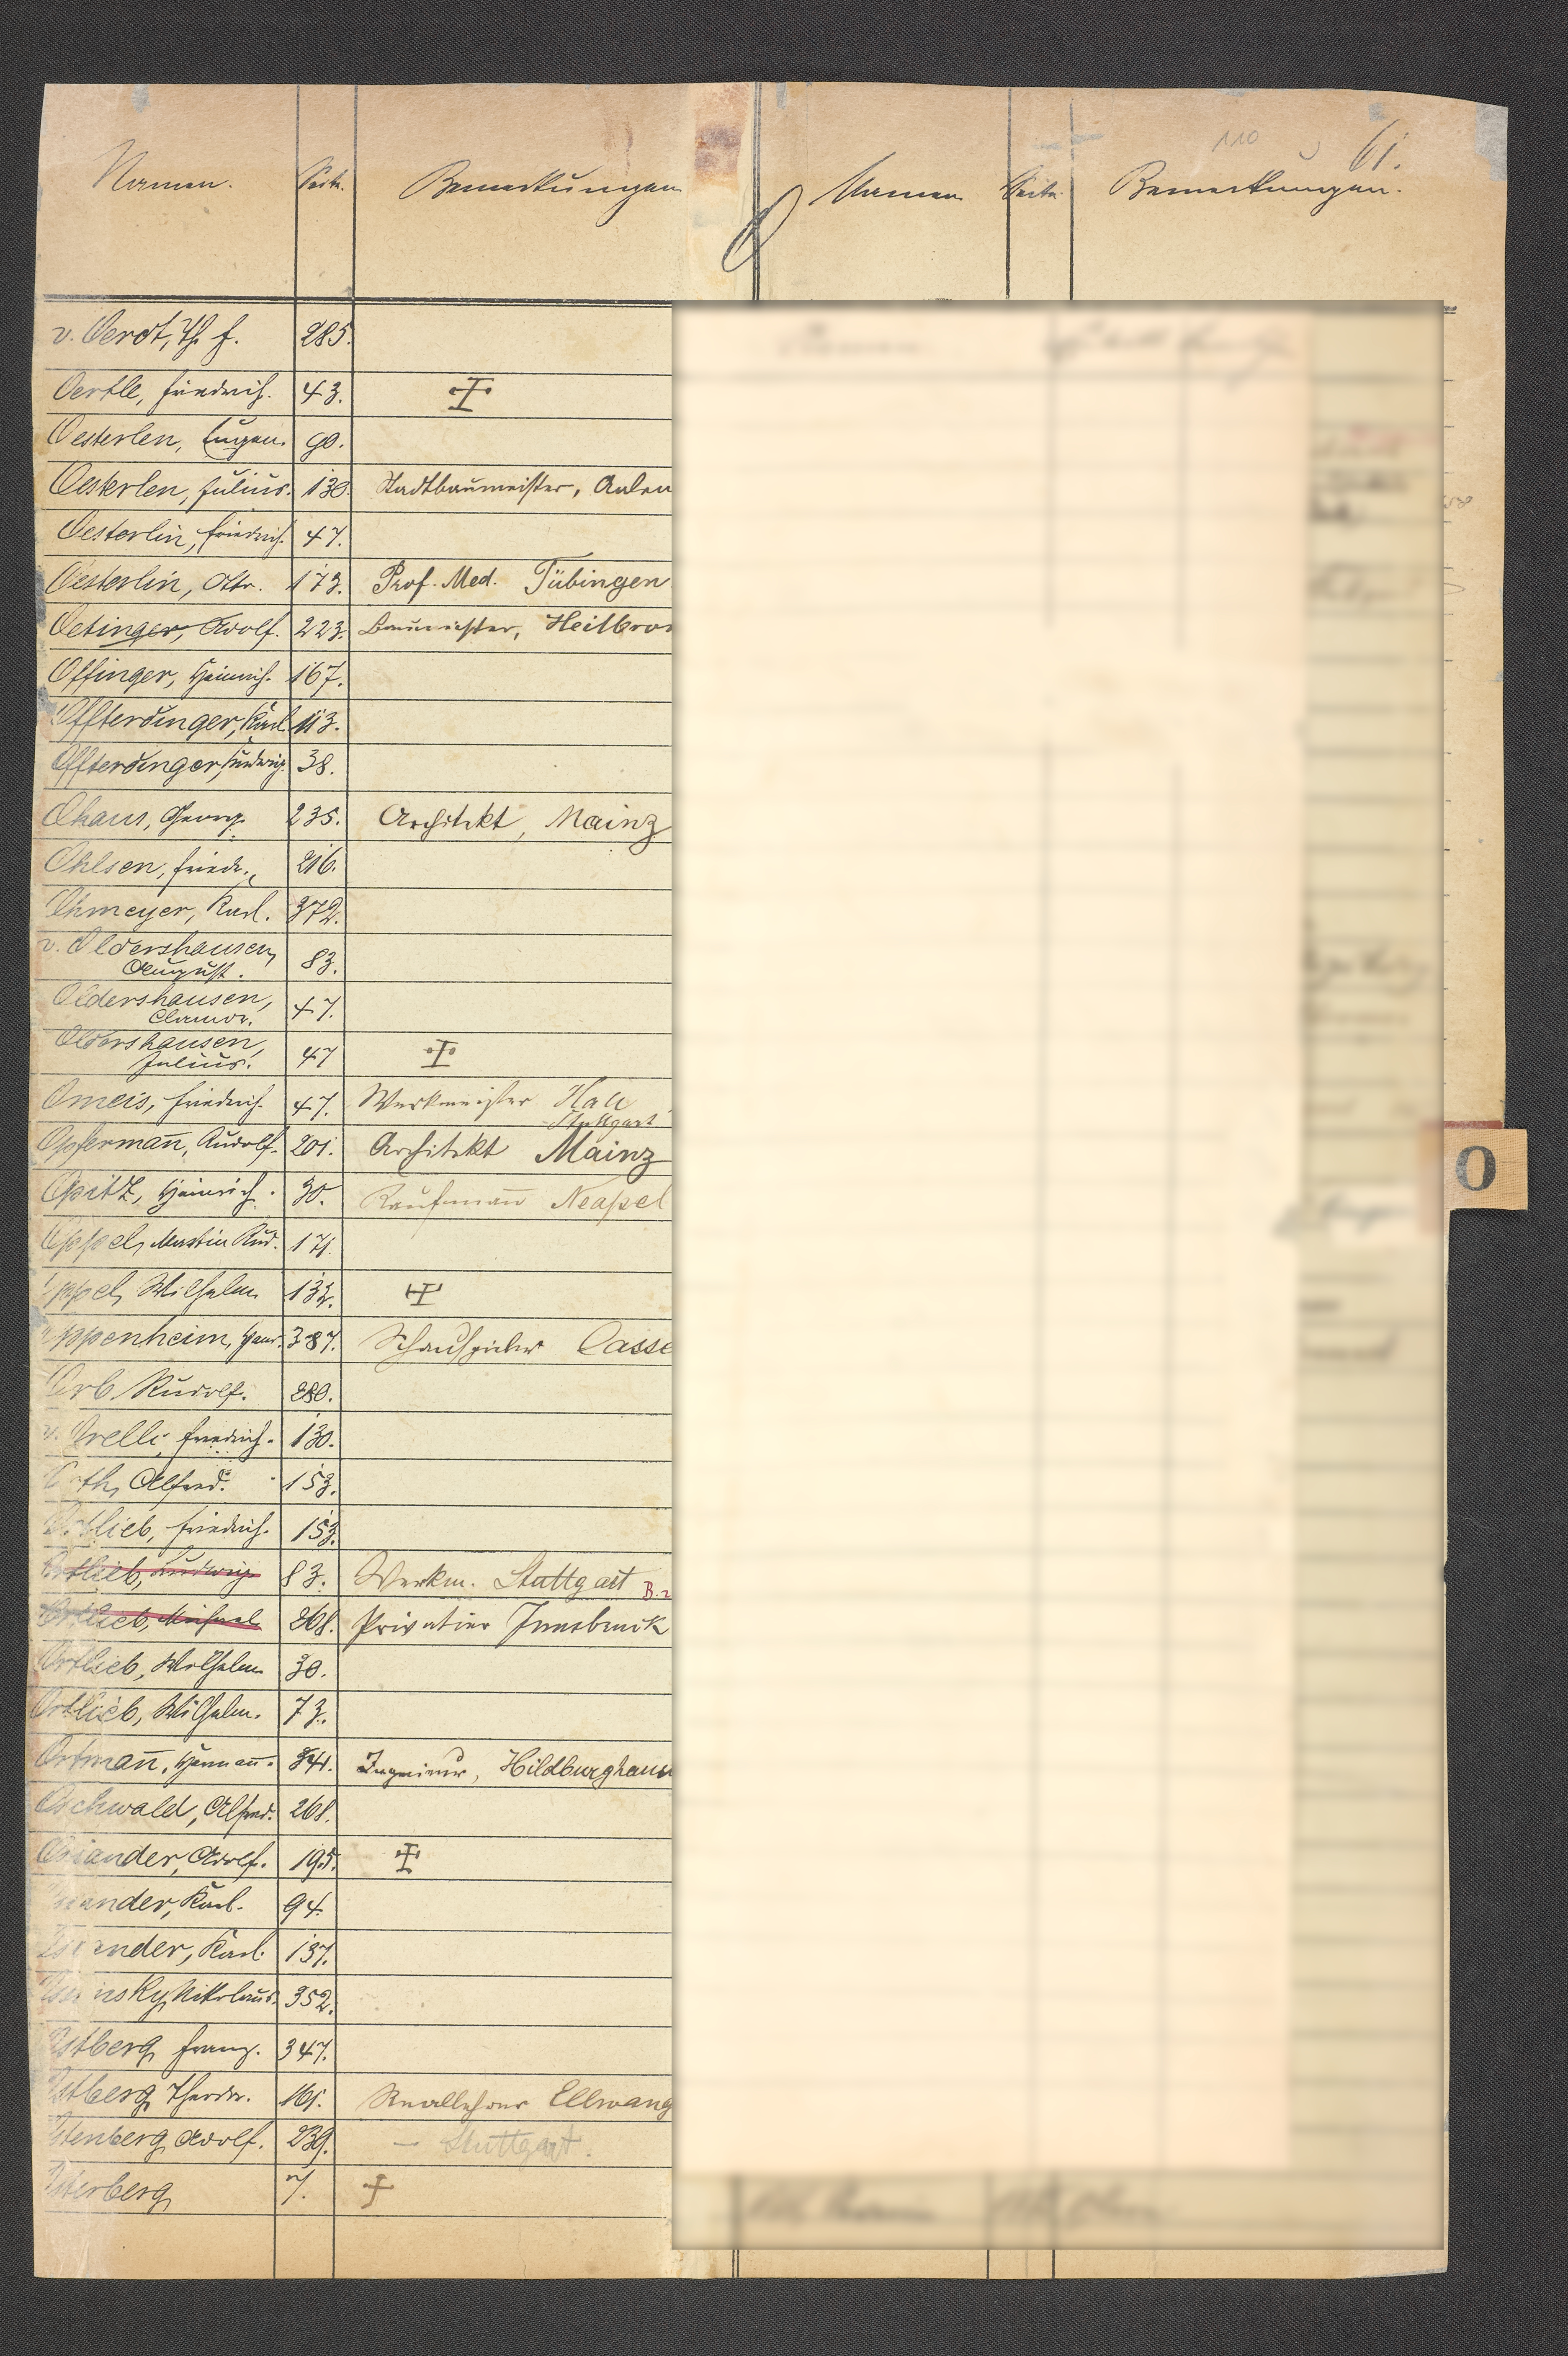 110
61.
Namen. Seite. Bemerkungen Namen Seite Bemerkungen.
v. Oerdt, Th. f. 285.
Oertle, Friedrich. 43.
Oesterlen, Eugen. 90.
Oesterlen, Julius. 130. Stadtbaumeister, Aalen
Oesterlin, Friedrich. 47.
Oesterlin, Otto. 173. Prof. Med. Tübingen
Oetinger, Adolf. 223. Baumeister, Heilbron
Offinger, Heinrich. 167.
Offterdinger, Karl 113.
Offterdinger, Ludwig. 38.
Ohaus, Georg. 235. Architekt, Mainz
Ohlsen, Friedr. 216.
Ohmeyer, Karl. 372.
v. Oldershausen,
August. 83.
Oldershausen,
47.
Oldershausen,
Julius. 47
Omeis, Friedrich. 47. Werkmeister Hall
Stuttgart
Opfermann, Rudolf. 201. Architekt Mainz
Opitz, Heinrich. 30. Kaufmann Neapel
Oppel, Martin Rud. 171.
Oppel, Wilhelm 132.
Oppenheim, 387. Schauspieler Casse
Orb Rudolf. 280.
v. Orelli, Friedrich. 130.
Orth, Alfred. 153.
Ortlieb, Friedrich. 153.
Ortlieb, Ludwig 83. Werkm. Stuttgart B.
Ortlieb, Michael 268. Privatier Innsbruck
Ortlieb, Wilhelm 30.
Ortlieb, Wilhelm. 73.
Ortmann, Hermann. 341. Ingenieur, Hildburghaus
Oschwald, Alfred. 268.
Osiander, Adolf. 195.
Osiander, Karl. 94.
Osiander, Karl. 137.
Nikolaus. 352.
Ostberg Franz. 347.
Ostberg Theodor. 161. Reallehrer Ellwang
Ostenberg Adolf. 239. – Stuttgart.
Osterberg 7.
O